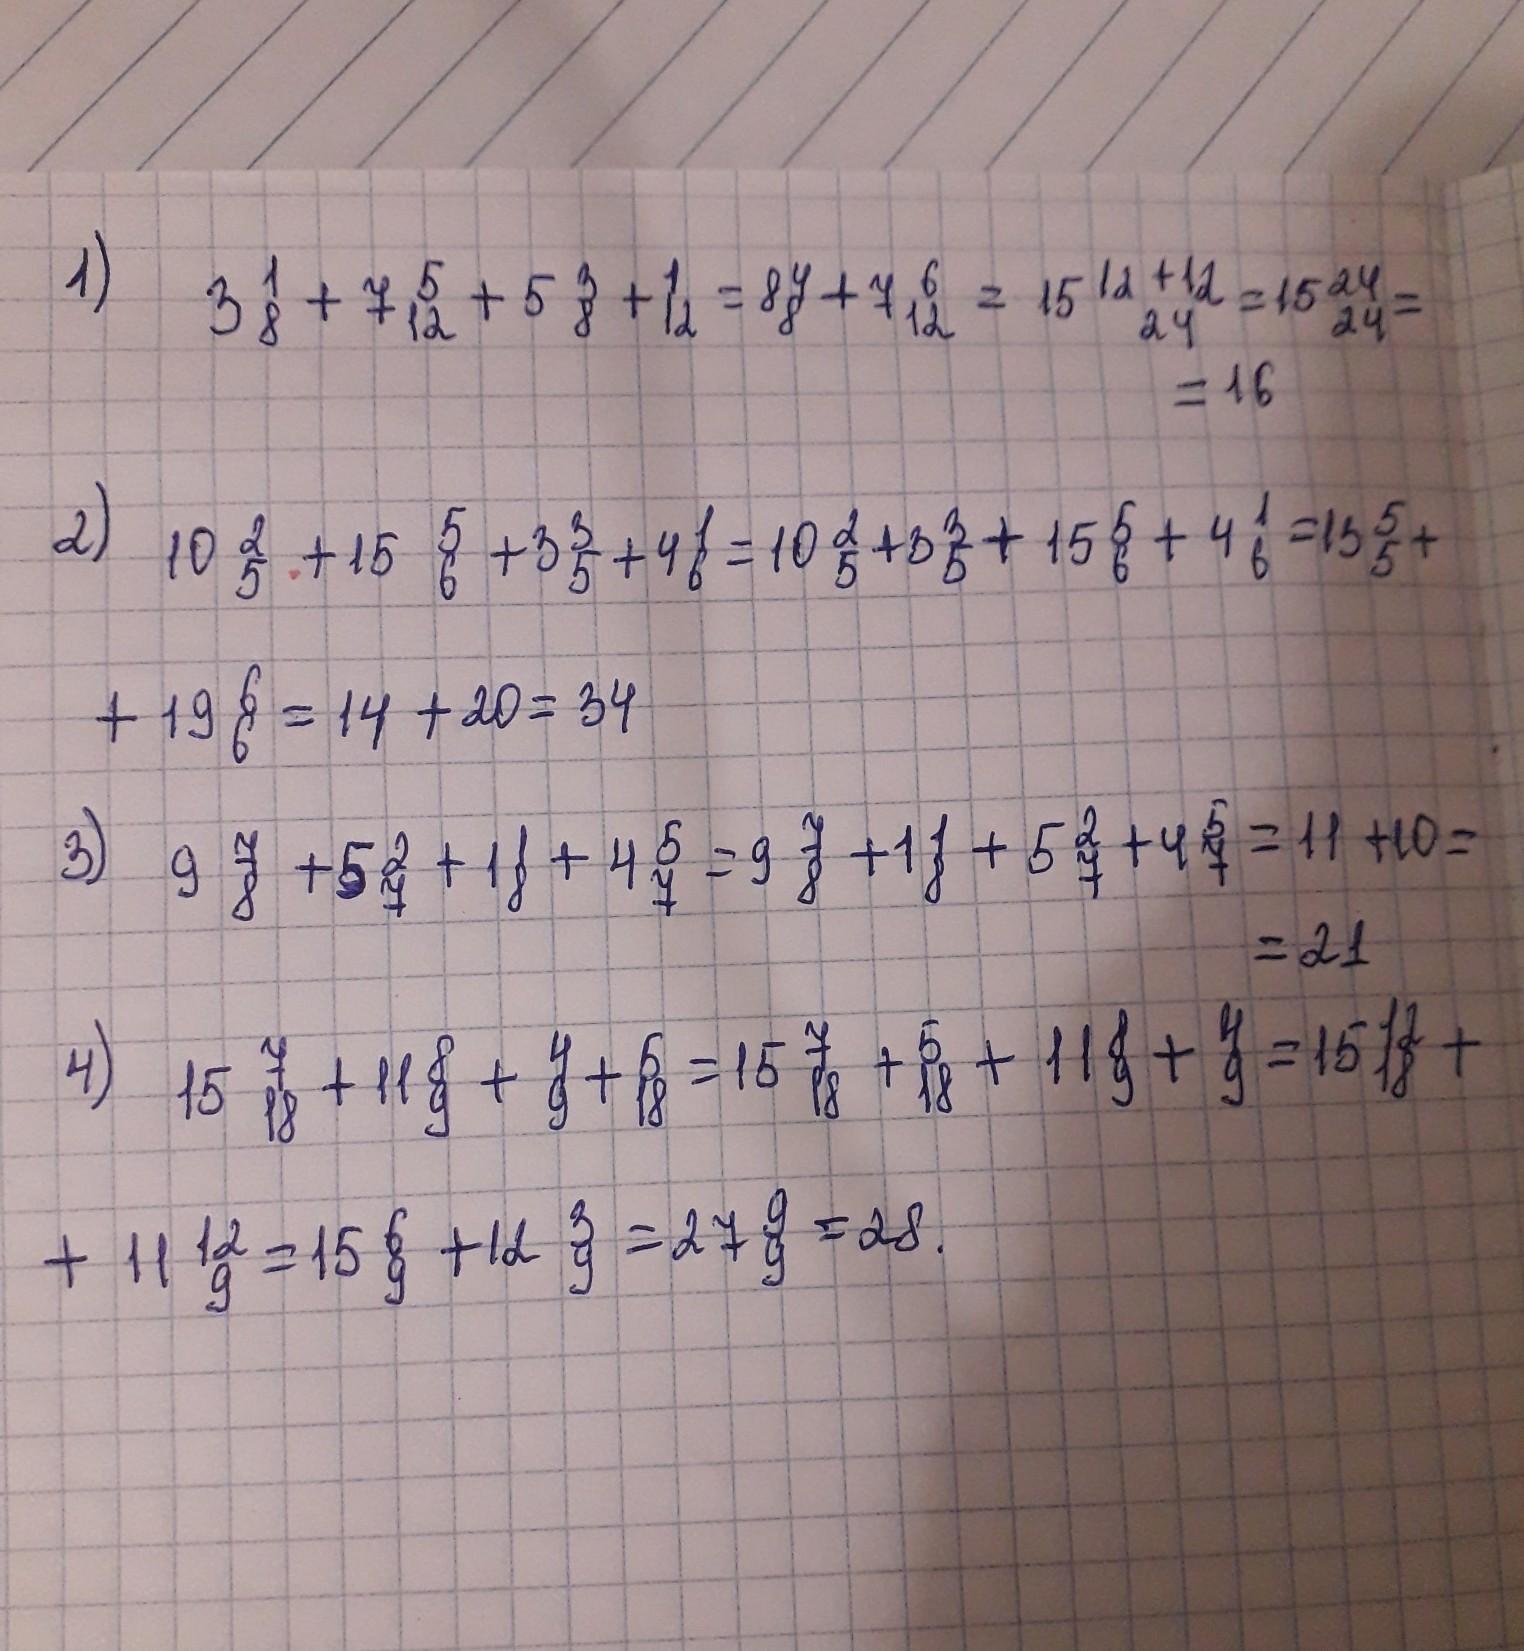 1) 3 1/8 + 7 5/12 + 5 3/8 + 1/12 = 8 4/8 + 7 6/12 = 15 12+12/24 = 15 24/24 =
= 16
2) 10 2/5 + 15 5/6 + 3 3/5 + 4 1/6 = 10 2/5 + 3 3/5 + 15 5/6 + 4 1/6 = 13 5/5 +
+ 19 6/6 = 14 + 20 = 34
3) 9 7/8 + 5 2/7 + 1 1/8 + 4 5/7 = 9 7/8 + 1 1/8 + 5 2/7 + 4 5/7 = 11 + 10 =
= 21
4) 15 7/18 + 11 8/9 + 4/9 + 5/18 = 15 7/18 + 5/18 + 11 8/9 + 4/9 = 15 12/18 +
+ 11 12/9 = 15 6/9 + 12 3/9 = 27 9/9 = 28.